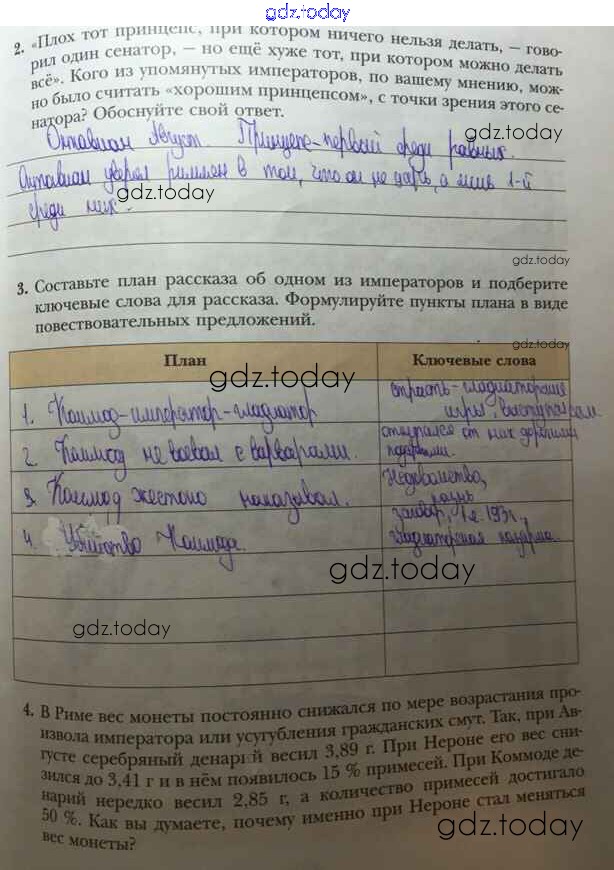 gdz.today
2. «Плох тот принцепс, при котором ничего нельзя делать, — гово-
рил один сенатор, — но ещё хуже тот, при котором можно делать
всё». Кого из упомянутых императоров, по вашему мнению, мож-
но было считать «хорошим принцепсом», с точки зрения этого се-
натора? Обоснуйте свой ответ.
Октавиан Август. Принцепс-первый среди равных.
gdz.today
Октавиан уверял римлян в том, что он не царь, а лишь 1-й
gdz.today
среди них.
gdz.today
3. Составьте план рассказа об одном из императоров и подберите
ключевые слова для рассказа. Формулируйте пункты плана в виде
повествовательных предложений.
gdz.today
План Ключевые слова
gdz.today
1. Коммод-император-гладиатор страсть-гладиаторские
игры, выступал сам.
2. Коммод не воевал с варварами. откупался от них дорогими
подарками.
3. Коммод жестоко наказывал. Недовольство,
казнь
4. Убийство Коммода. заговор, 193г.
гладиаторская казарма.
gdz.today
gdz.today
4. В Риме вес монеты постоянно снижался по мере возрастания про-
извола императора или усугубления гражданских смут. Так, при Ав-
густе серебряный денарий весил 3,89 г. При Нероне его вес сни-
зился до 3,41 г и в нём появилось 15 % примесей. При Коммоде де-
нарий нередко весил 2,85 г, а количество примесей достигало
50 %. Как вы думаете, почему именно при Нероне стал меняться
вес монеты?
gdz.today